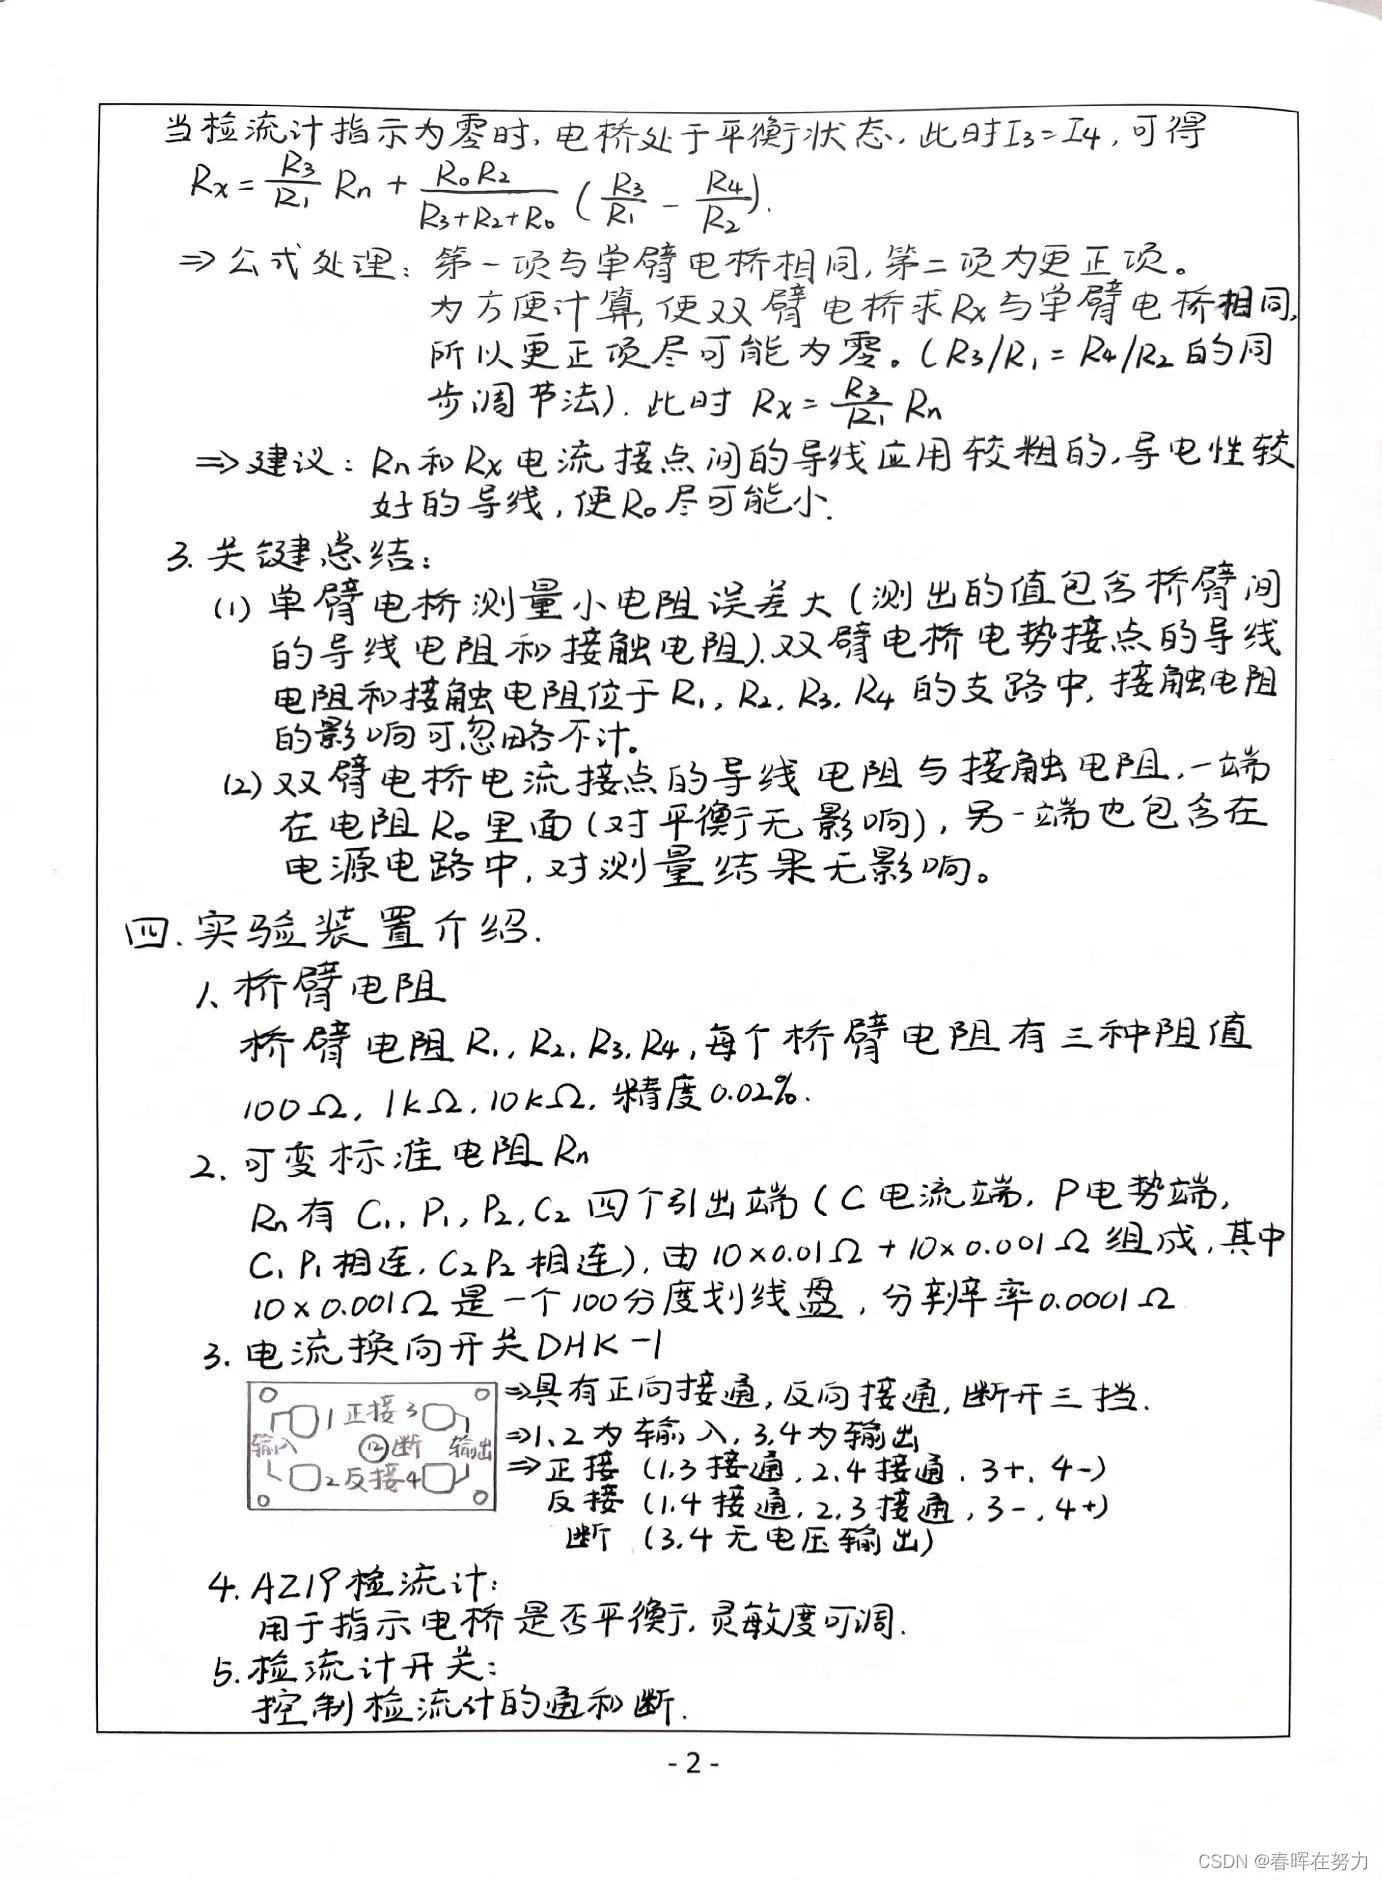 当检流计指示为零时,电桥处于平衡状态,此时I3=I4,可得
Rx = R3/R1 Rn + R0R2/(R3+R2+R0) (R3/R1 - R4/R2).
⇒公式处理:第一项与单臂电桥相同,第二项为更正项。
为方便计算,使双臂电桥求Rx与单臂电桥相同,
所以更正项尽可能为零。(R3/R1=R4/R2的同
步调节法).此时 Rx=R3/R1 Rn
⇒建议:Rn和Rx电流接点间的导线应用较粗的,导电性较
好的导线,使R0尽可能小.
3.关键总结:
(1)单臂电桥测量小电阻误差大(测出的值包含桥臂间
的导线电阻和接触电阻).双臂电桥电势接点的导线
电阻和接触电阻位于R1,R2,R3,R4的支路中,接触电阻
的影响可忽略不计。
(2)双臂电桥电流接点的导线电阻与接触电阻,一端
在电阻R0里面(对平衡无影响),另一端也包含在
电源电路中,对测量结果无影响。
四.实验装置介绍.
1、桥臂电阻
桥臂电阻R1,R2,R3,R4,每个桥臂电阻有三种阻值
100Ω,1kΩ,10kΩ,精度0.02%.
2.可变标准电阻Rn
Rn有C1,P1,P2,C2四个引出端(C电流端,P电势端,
C1P1相连,C2P2相连),由10×0.01Ω+10×0.001Ω组成,其中
10×0.001Ω是一个100分度划线盘,分辨率0.0001Ω
3.电流换向开关DHK-1
1 正接 3
输入 ⑫断 输出
2 反接 4
⇒具有正向接通,反向接通,断开三挡.
⇒1、2为输入,3.4为输出
⇒正接(1.3接通,2.4接通,3+,4-)
反接(1.4接通,2.3接通,3-,4+)
断(3.4无电压输出)
4.AZ19检流计:
用于指示电桥是否平衡,灵敏度可调.
5.检流计开关:
控制检流计的通和断.
- 2 -
CSDN @春晖在努力